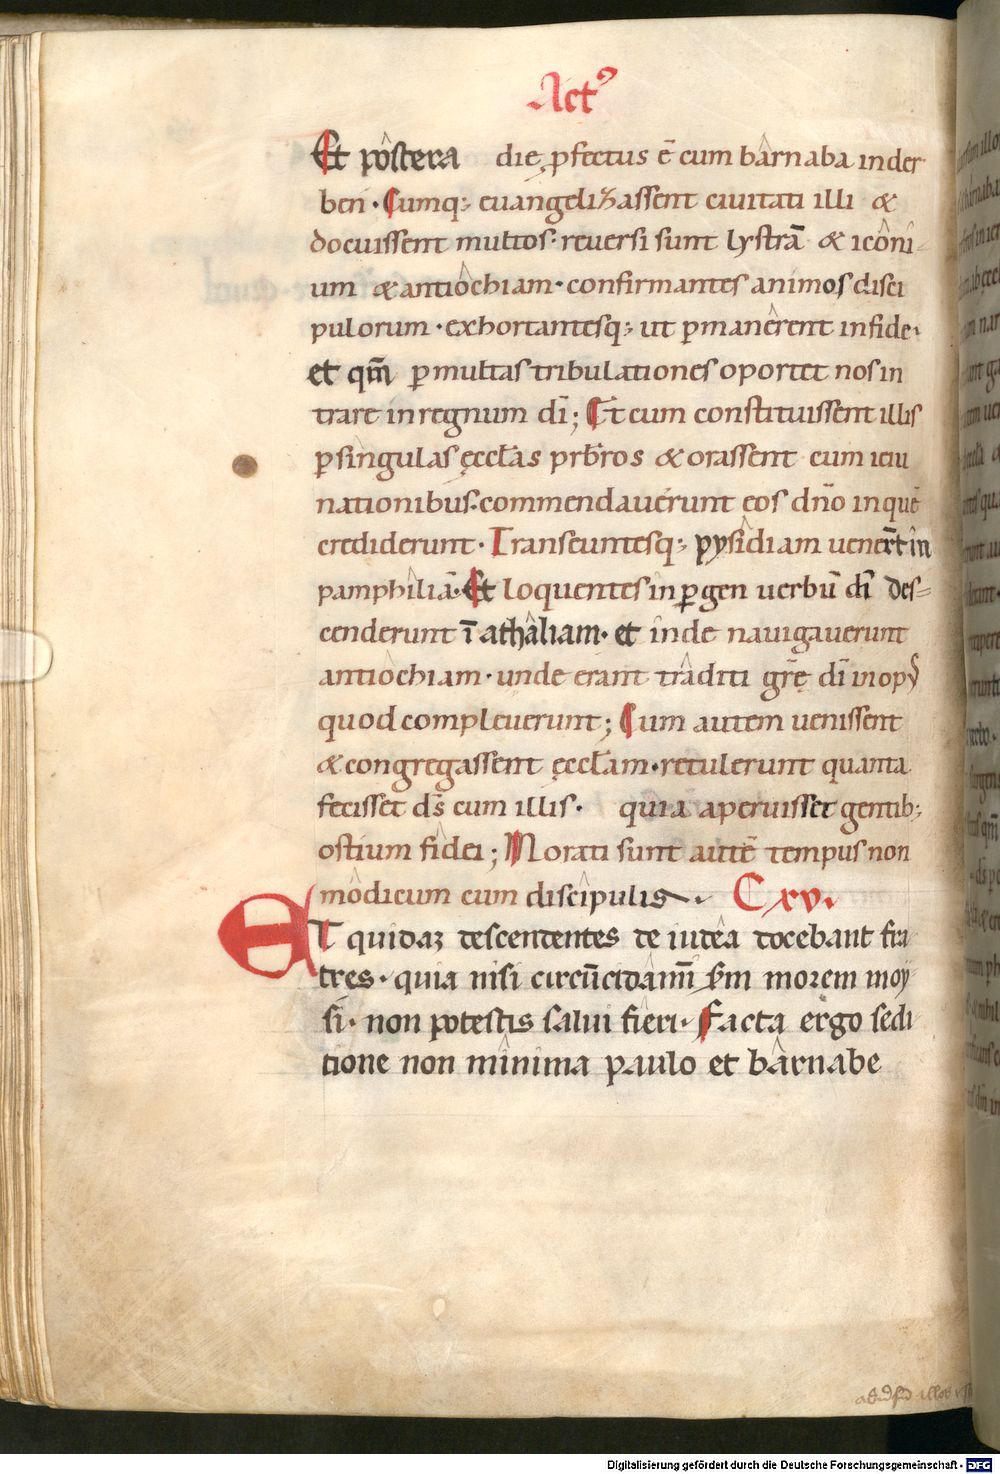 Actꝰ
Et pôstera die ꝓfectus ē cum bârnaba in der
ben · Cumq; euangelizassent ciuitati illi &
docuissent multos · reuersi sunt lystrā & icôni-
um & antiôchiam · confirmantes animos disci
pulorum · exhortantesq; ut ꝑmanêrent in fide ·
et qm̄ ꝑ multas tribulationes oportet nos in
trare in regnum dī ; Et cum constituissent illis
ꝑ singulas ęcclas prƀros & orassent cum ieiu
nationibus · commendauérunt eos dn̄o in quē
crediderunt · Transeuntesq; pysîdiam uener̄t în
pamphîliā · Et loquentes in ꝑgen uerbū dn̄i des-
cenderunt ī athâliam · et inde nauigauerunt
antiôchiam · unde erant trâditi gr̄ę dī in opꝰ
quod compleuerunt ; Cum autem uenissent
& congregassent ęcclam · retulerunt quanta
fecisset dș cum illis · quia aperuisset gentib;
ostium fîdei ; Morati sunt autē tempus non
môdicum cum discîpulis · C xv ·
ET quidaꝫ descendentes de iudêa docebant fra
tres · quia nisi circūcidâmī scđm morem moy
si · non potestis salui fîeri · Facta ergo sedi
tione non mînima paulo et bârnabe
Digitalisierung gefördert durch die Deutsche Forschungsgemeinschaft - DFG